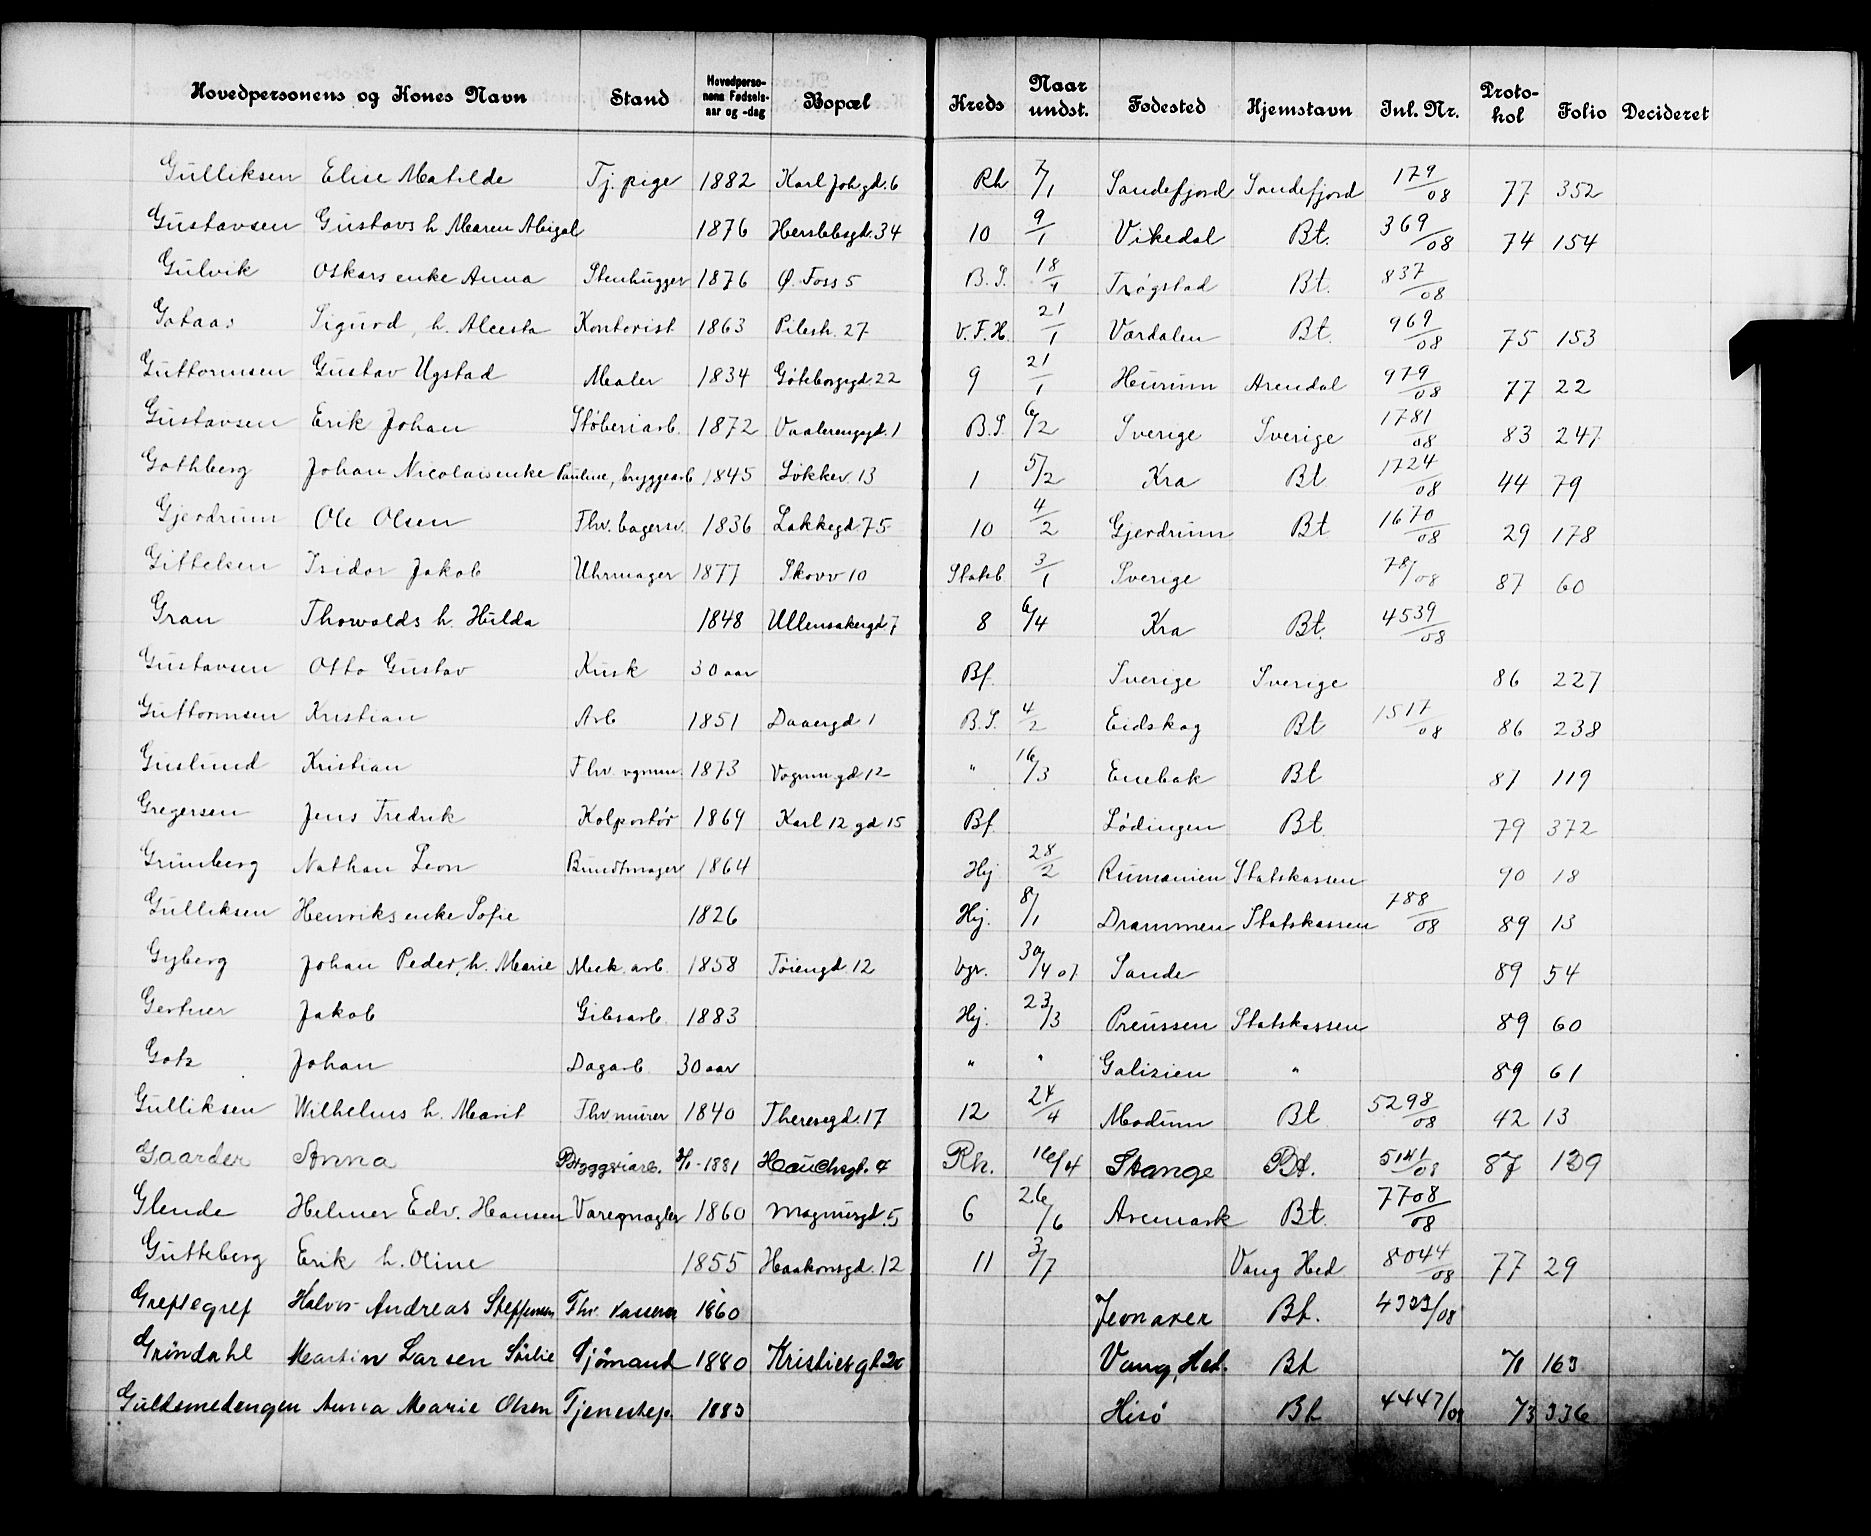 Hovedpersonens og Kones Navn Stand Hovedperso-nens Fødsels-aar og -dag Bopæl Kreds Naar undst. Fødested Hjemstavn Inl. Nr. Proto-kol Folio Decideret
Gulliksen Elise Matilde Tj. pige 1882 Karl Joh gd. 6 Rh 7/1 Sandefjord Sandefjord 179/08 77 352
Gustavsen Gustavs h. Maren Abigal 1876 Herslebsgd. 34 10 9/1 Vikedal Bt. 369/08 74 154
Gulvik Oskars enke Anna Stenhugger 1876 Ø. Foss 5 B.S. 18/1 Trøgstad Bt. 837/08
Gotaas Sigurd, h. Aleesta Kontorist 1863 Pilestr. 27 V.F.H. 21/1 Værdalen Bt. 969/08 75 153
Guttormsen Gustav Ugstad Maler 1834 Gøteborggd. 22 9 21/1 Hurum Arendal 979/08 77 22
Gustavsen Erik Johan Støberiarb. 1872 Vaalerenggd. 1 B.S. 6/2 Sverige Sverige 1781/08 83 247
Gothberg Johan Nicolais enke Pauline, bryggearb 1845 Løkkev. 13 1 5/2 Kra Bt 1724/08 44 79
Gjerdrum Ole Olsen Fhv. bagersv. 1836 Lakkegd 75 10 4/2 Gjerdrum Bt 1670/08 29 178
Gittelsen Isidor Jakob Uhrmager 1877 Skovv 10 Statsb 3/1 Sverige 78/08 87 60
Gran Thorvalds h. Hilda 1848 Ullensakergd 7 8 6/4 Kra Bt. 4539/08
Gustavsen Otto Gustav Kusk 30 aar Bf. Sverige Sverige 86 227
Guttormsen Kristian Arb 1851 Daaergd 1 B.S. 4/2 Eidskog Bt 1517/08 86 238
Guslund Kristian Fhv. vgnm. 1873 Vognmgd 12 " 16/3 Enebak Bt 87 119
Gregersen Jens Fredrik Kolportør 1869 Karl 12 gd 15 Bf Lødingen Bt. 79 372
Grünberg Nathan Leon Bundtmager 1864 Hj 28/2 Rumænien Statskassen 90 18
Gulliksen Henriks enke Sofie 1826 Hj. 8/1 Drammen Statskassen 788/08 89 13
Gyberg Johan Peder, h. Marie Mek. arb. 1858 Tøiengd. 12 Vgr. 30/4 07 Sande 89 54
Gertner Jakob Gibsarb. 1883 Hj. 23/3 Preussen Statskassen 89 60
Gotz Johan Dagarb. 30 aar " " Galizien " 89 61
Gulliksen Wilhelms h. Marit Fhv murer 1840 Theresegd. 17 12 24/4 Modum Bt 5298/08 42 13
Gaarder Anna Bryggeriarb. 1881 Hauchsgt. 4 Rh. 16/4 Stange Bt. 5141/08 87 139
Glende Helmer Edv. Hansen Varemægler 1860 Magnusgd. 5 6 26/6 Aremark Bt. 7708/08
Gutteberg Erik h. Oline 1855 Haakonsgd. 12 11 3/7 Vang Hed 8044/08 77 29
Greftegref Halvor Andreas Steffensen Fhv. kasserer 1860 Jevnaker Bt. 4323/08
Grøndahl Martin Larsen Sørlie Sjømand 1880 Kristiesgt 20 Vang, Hed. Bt 71 163
Guldsmedengen Anna Marie Olsen Tjenestep. 1883 Hisø Bt 4447/08 73 336